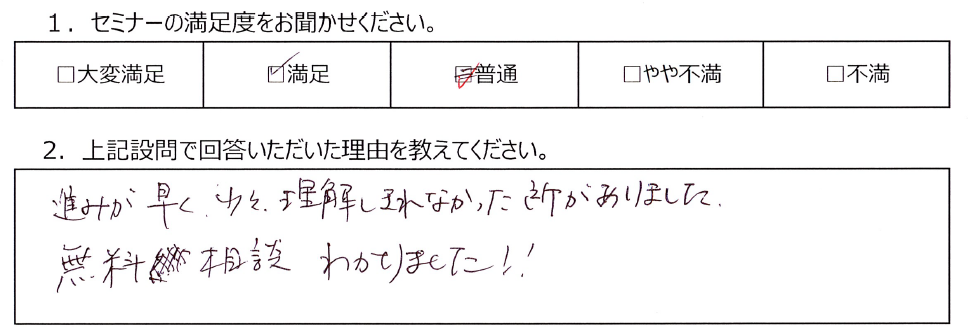 1．セミナーの満足度をお聞かせください。
□大変満足 ☑満足 ☑普通 □やや不満 □不満
2．上記設問で回答いただいた理由を教えてください。
進みが早く、少々、理解しきれなかった所がありました。
無料相談 わかりました!!